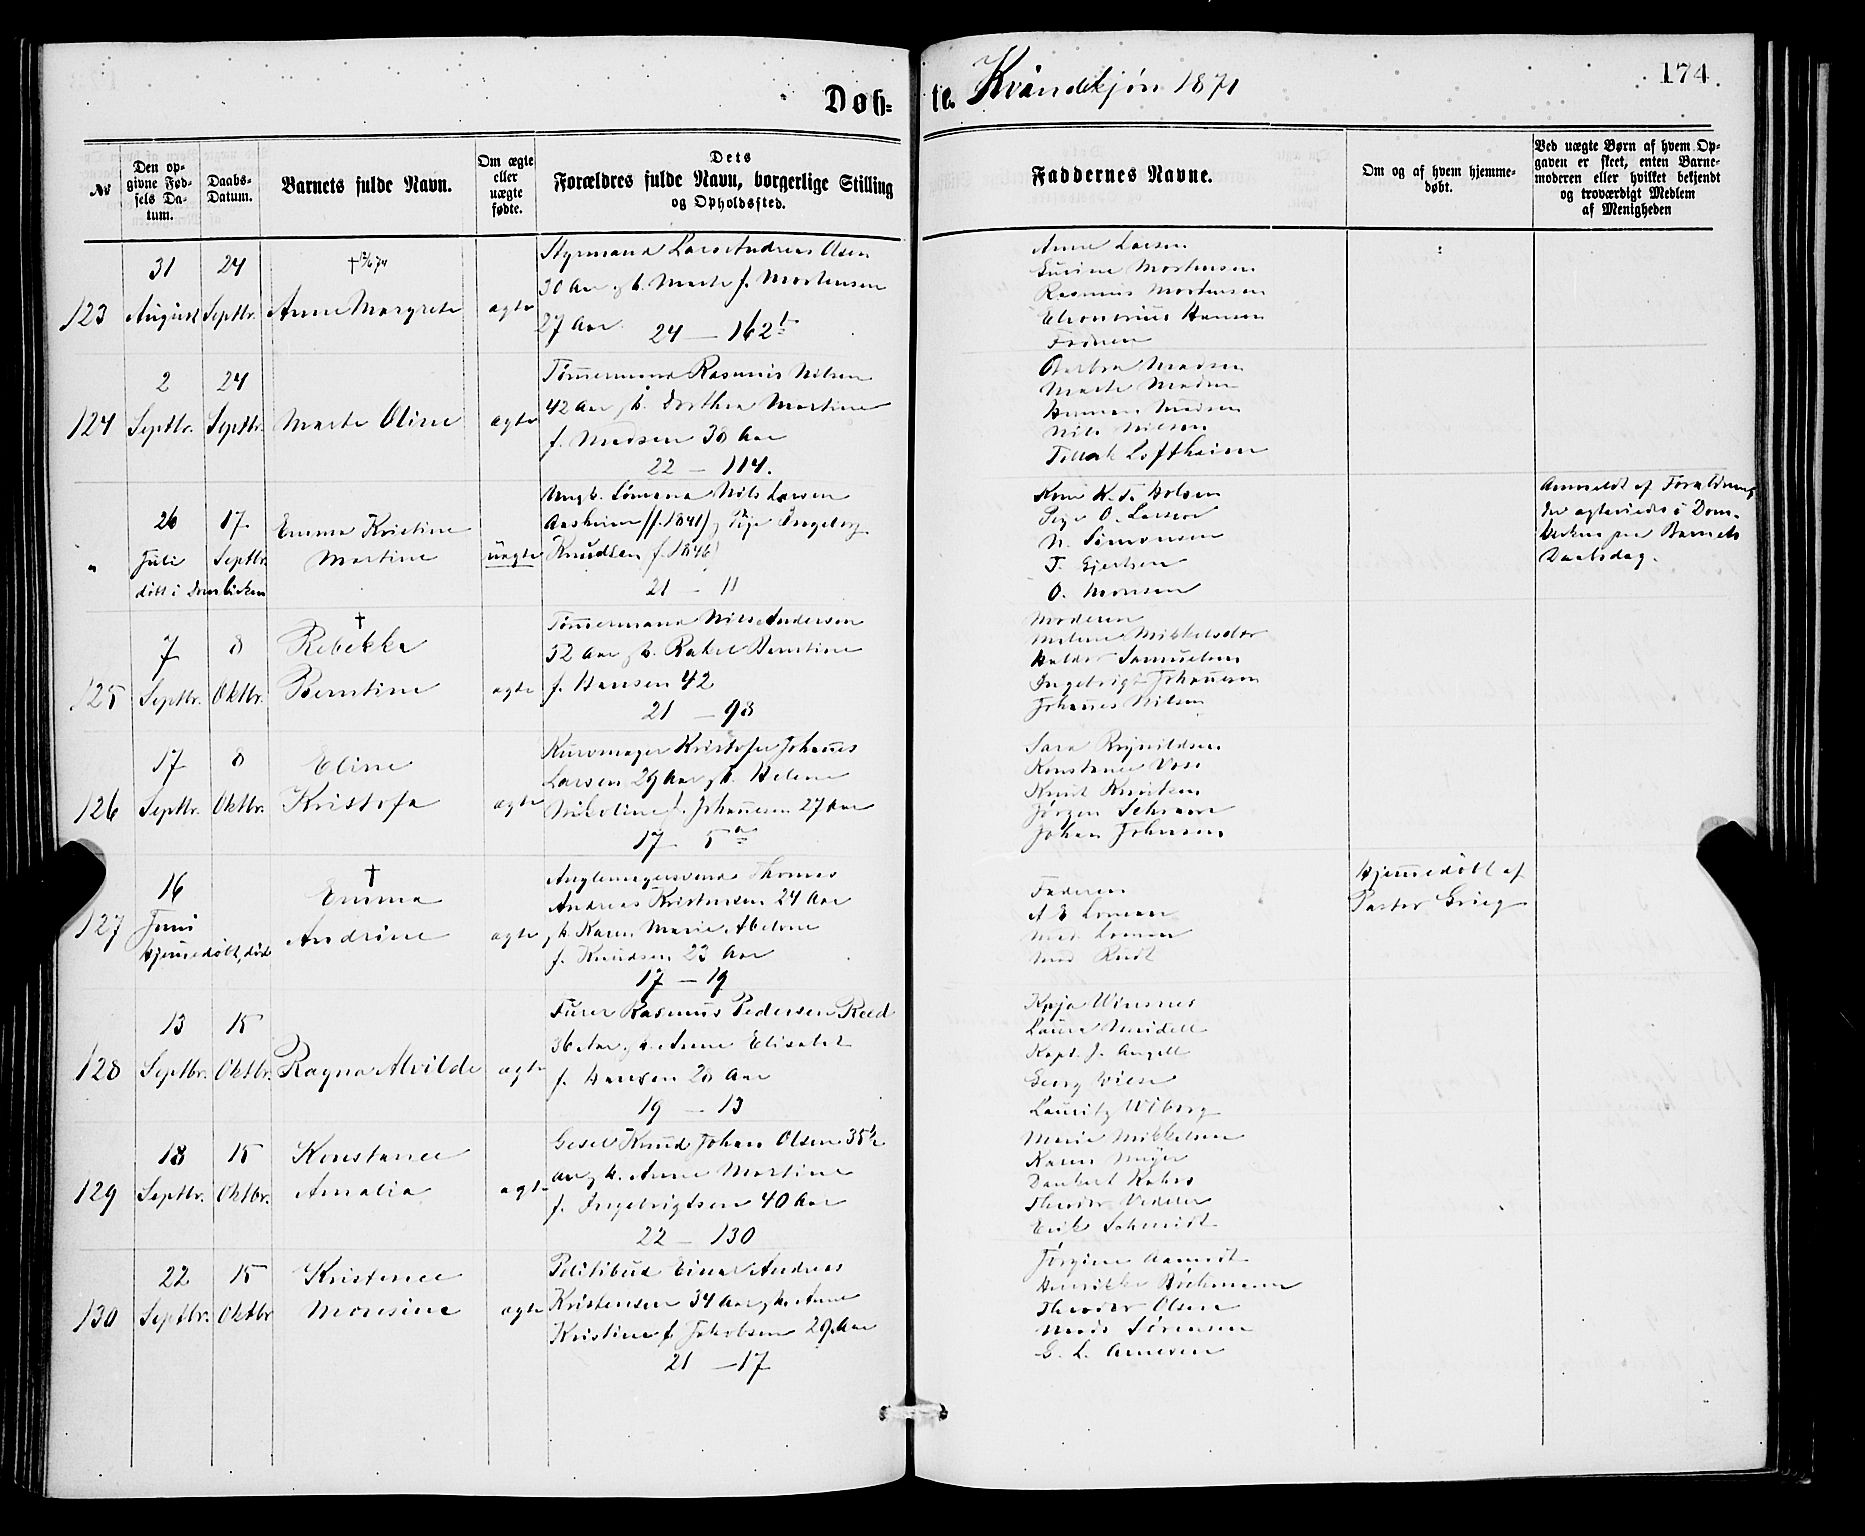 Døb=te. Kvindekjøn 1871
174.
No
Den op-
givne Fød-
sels Da-
tum.
Daabs-
Datum.
Barnets fulde Navn.
Om ægte
eller
uægte
fødte.
Dets
Forældres fulde Navn, borgerlige Stilling
og Opholdssted.
Faddernes Navne.
Om og af hvem hjemme-
døbt.
Ved uægte Børn af hvem Op-
gaven er skeet, enten Barne-
moderen eller hvilket bekjendt
og troværdigt Medlem
af Menigheden
123
31
August
24
Septbr.
†
Anne Margrete
ægte
Styrmand Lars Andreas Olsen
30 Aar og h. Marte f. Mortensen
27 Aar
24 — 162
Anne Larsen
Mortensen
Rasmus Mortensen
Hansen
Faderen
124
2
Septbr.
24
Septbr.
Marte Oline
ægte
Tømmermand Rasmus Nilsen
42 Aar og h. Dorthea Martine
f. Madsen 38 Aar
22 — 114.
Madsen
Marte Madsen
Herman Madsen
Nils Nilsen
Tellak Loftheim
"
26
Juli
17.
Septbr.
døbt i Domkirken
Emma Kristine
Martine
uægte
Ungk. Sømand Nils Larsen
Aasheim (f. 1841) og Pige Ingeborg
Knudsen f. 1846)
21 — 11
Kone K. T. Holsen
Pige O. Larsen
N. Simonsen
T. Gjertsen
O. Monsen
Anmeldt af Forældrene,
der ægteviedes i Dom-
kirken paa Barnets
Daabsdag.
125
7
Septbr.
8
Oktbr.
†
Rebekka
Berntine
ægte
Tømmermand Nils Andersen
52 Aar og h. Rakel Berntine
f. Hansen 42
21 — 98
Moderen
Malene Mikkelsdtr
Samuelsen
Ingebrigt Johannesen
Johannes Nilsen
126
17
Septbr.
8
Oktbr.
Eline
Kristofa
ægte
Kurvmager Kristofer Johannes
Larsen 29 Aar og h. Helene
Nikoline f. Johannesen 27 Aar
17 5a
Sara
Konstance Vose
Knut Knutsen
Jørgen
Johan Johnsen
127
16
Juni
Hjemmedøbt, død
†
Emma
Andrine
ægte
Thomas
Andreas Kristensen 24 Aar
og h. Karen Marie Abelone
f. Knudsen 23 Aar
17 — 19
Faderen
A E
Mad.
Mad
Hjemmedøbt af
Pastor Grieg
128
13
Septbr.
15
Oktbr.
Ragna Alvilde
ægte
Furer Rasmus Pedersen Reed
36 Aar og h. Anne Elisabet
f. Hansen 28 Aar
19 — 13
Kaja Winsnes
Laura
Kapt. J. Angell
Georg Wiese
Lauritz Wiborg
129
18
Septbr.
15
Oktbr.
Konstance
Amalia
ægte
Gesel Knud Johan Olsen 35½
Aar og h. Anne Martine
f. Ingebrigtsen 40 Aar
22 — 130
Marie Mikkelsen
Karen Meyer
Dankert Kahrs
Theodor
Erik Schmidt
130
22
Septbr.
15
Oktbr
Kristence
Monsine
ægte
Politibud Einar Andreas
Kristensen 34 Aar og h. Anne
Kristine f. Jakobsen 29 Aar
21 — 17
Jørgine
Henrikke
Theodor Olsen
Sørensen
G. L. Arnesen